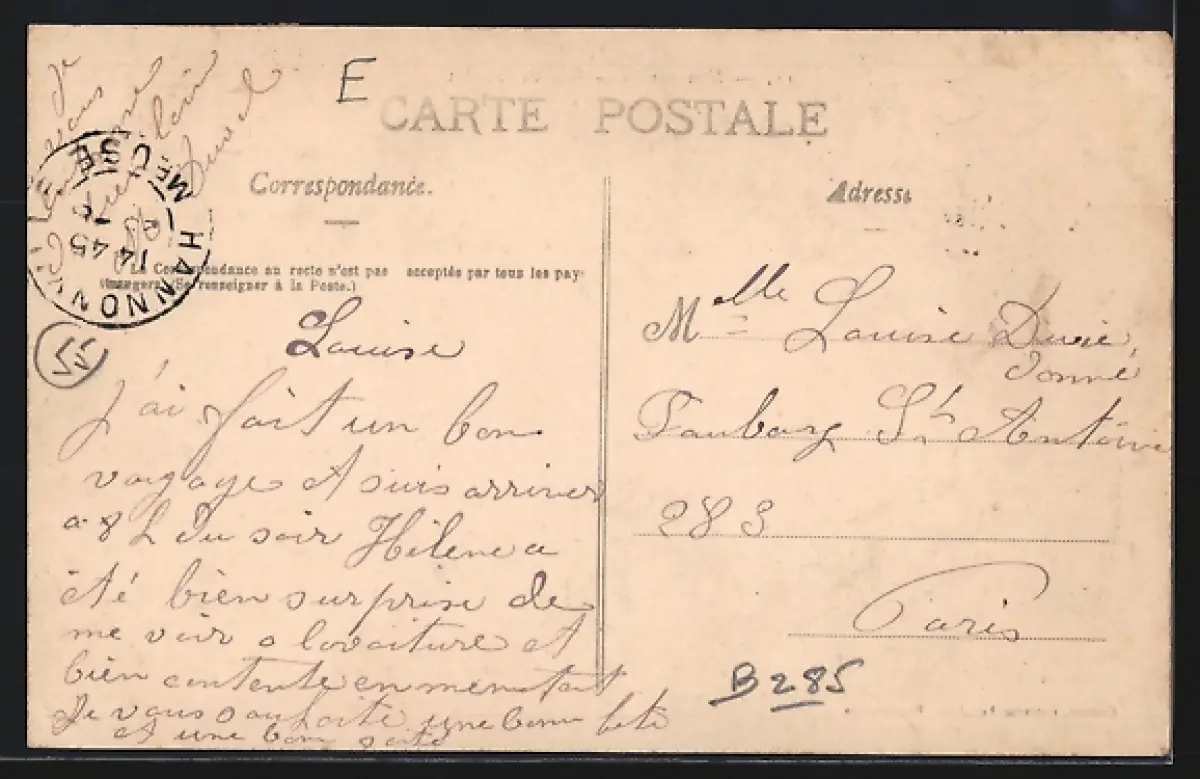 E
CARTE POSTALE
Correspondance.
Adresse
La Correspondance au recto n'est pas acceptée par tous les pays
étrangers (Se renseigner à la Poste.)
HANNONV
MEUSE
14 45
Louise
J'ai fait un bon
voyage et suis arriver
a 8 h du soir Hélène a
été bien surprise de
me voir a la voiture et
bien contente en même tant
Je vous souhaite une bonne fête
et une bonne
Mlle Louise
Faubourg St Antoine
283
Paris
B285